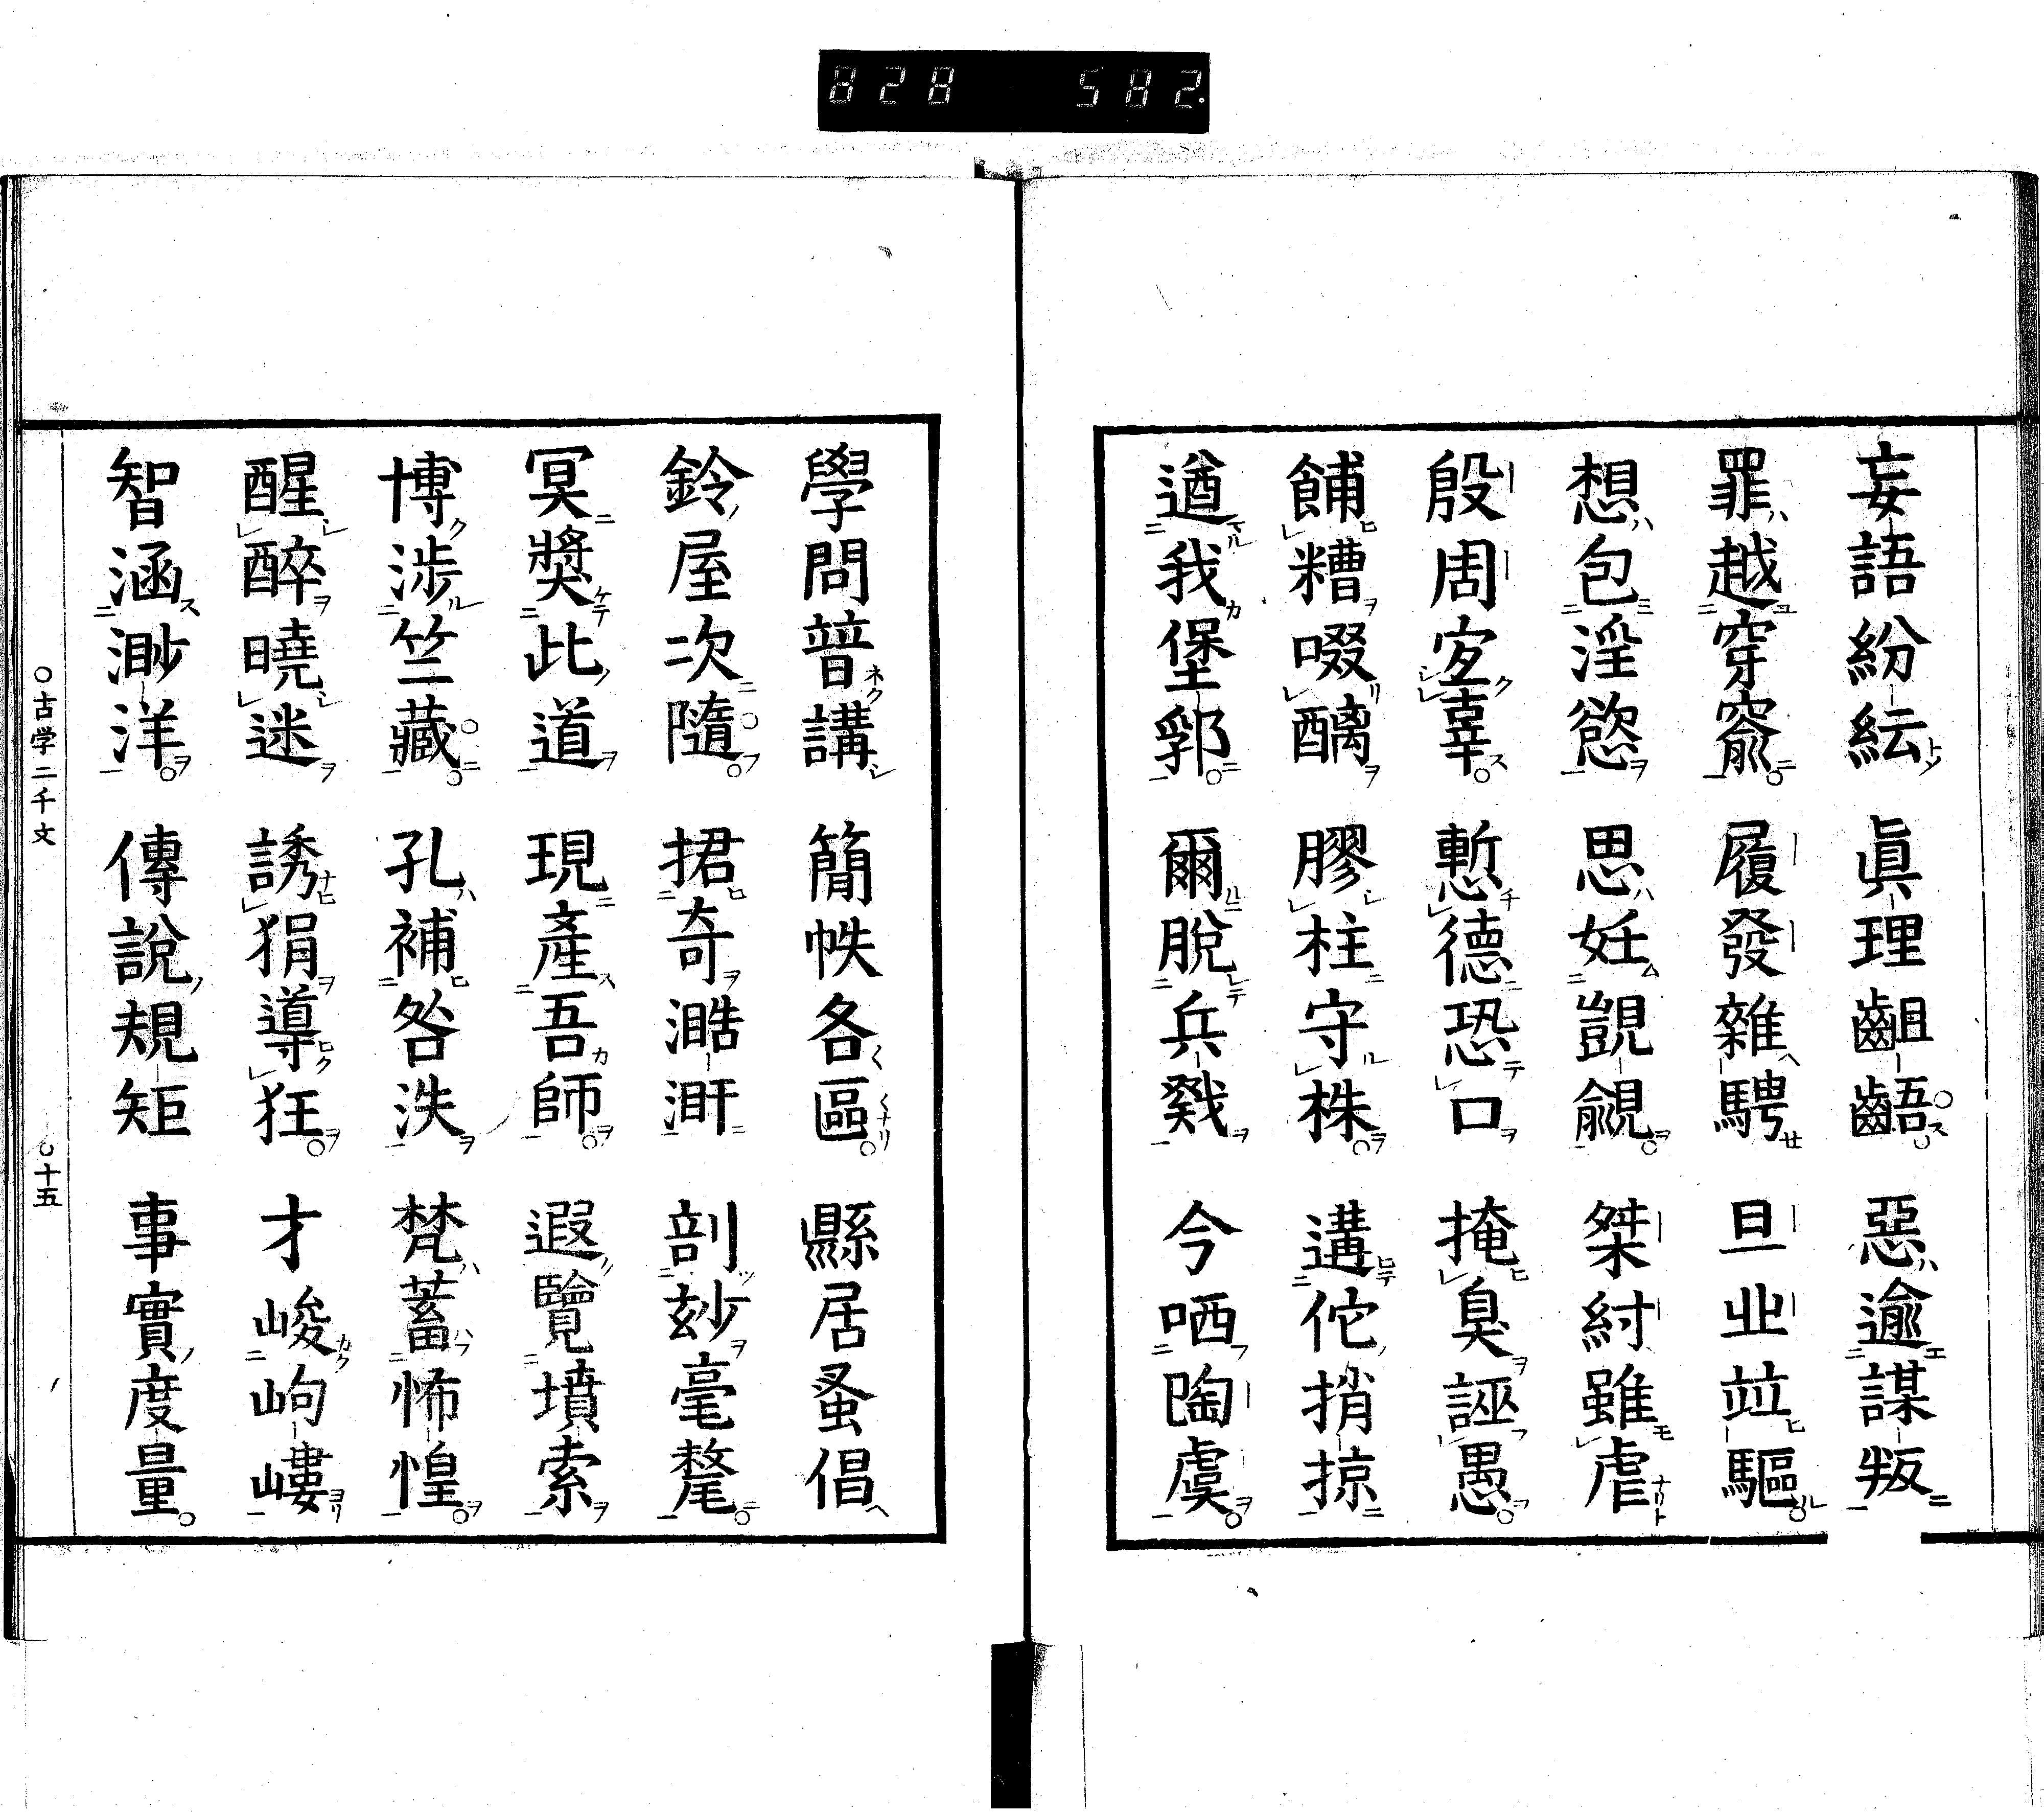 828 582
妄語紛紜 眞理齟齬 惡逾謀叛
罪越穿窬 履發雜騁 旦业竝驅
想包淫慾 思妊覬覦 桀紂雖虐
殷周寔辜 慙德恐口 掩臭誣愚
餔糟啜醨 膠柱守株 遘佗捎掠
遒我堡郛 爾脫兵戣 今哂陶虞
學問普講 簡帙各區 縣居蚤倡
鈴屋次隨 捃奇澔汗 剖玅毫氂
冥奬此道 現產吾師 遐覽墳索
博涉竺藏 孔補咎泆 梵蓄怖惶
醒醉曉迷 誘狷導狂 才峻岣嶁
智涵渺洋 傳說規矩 事實度量
○古学二千文 ○十五